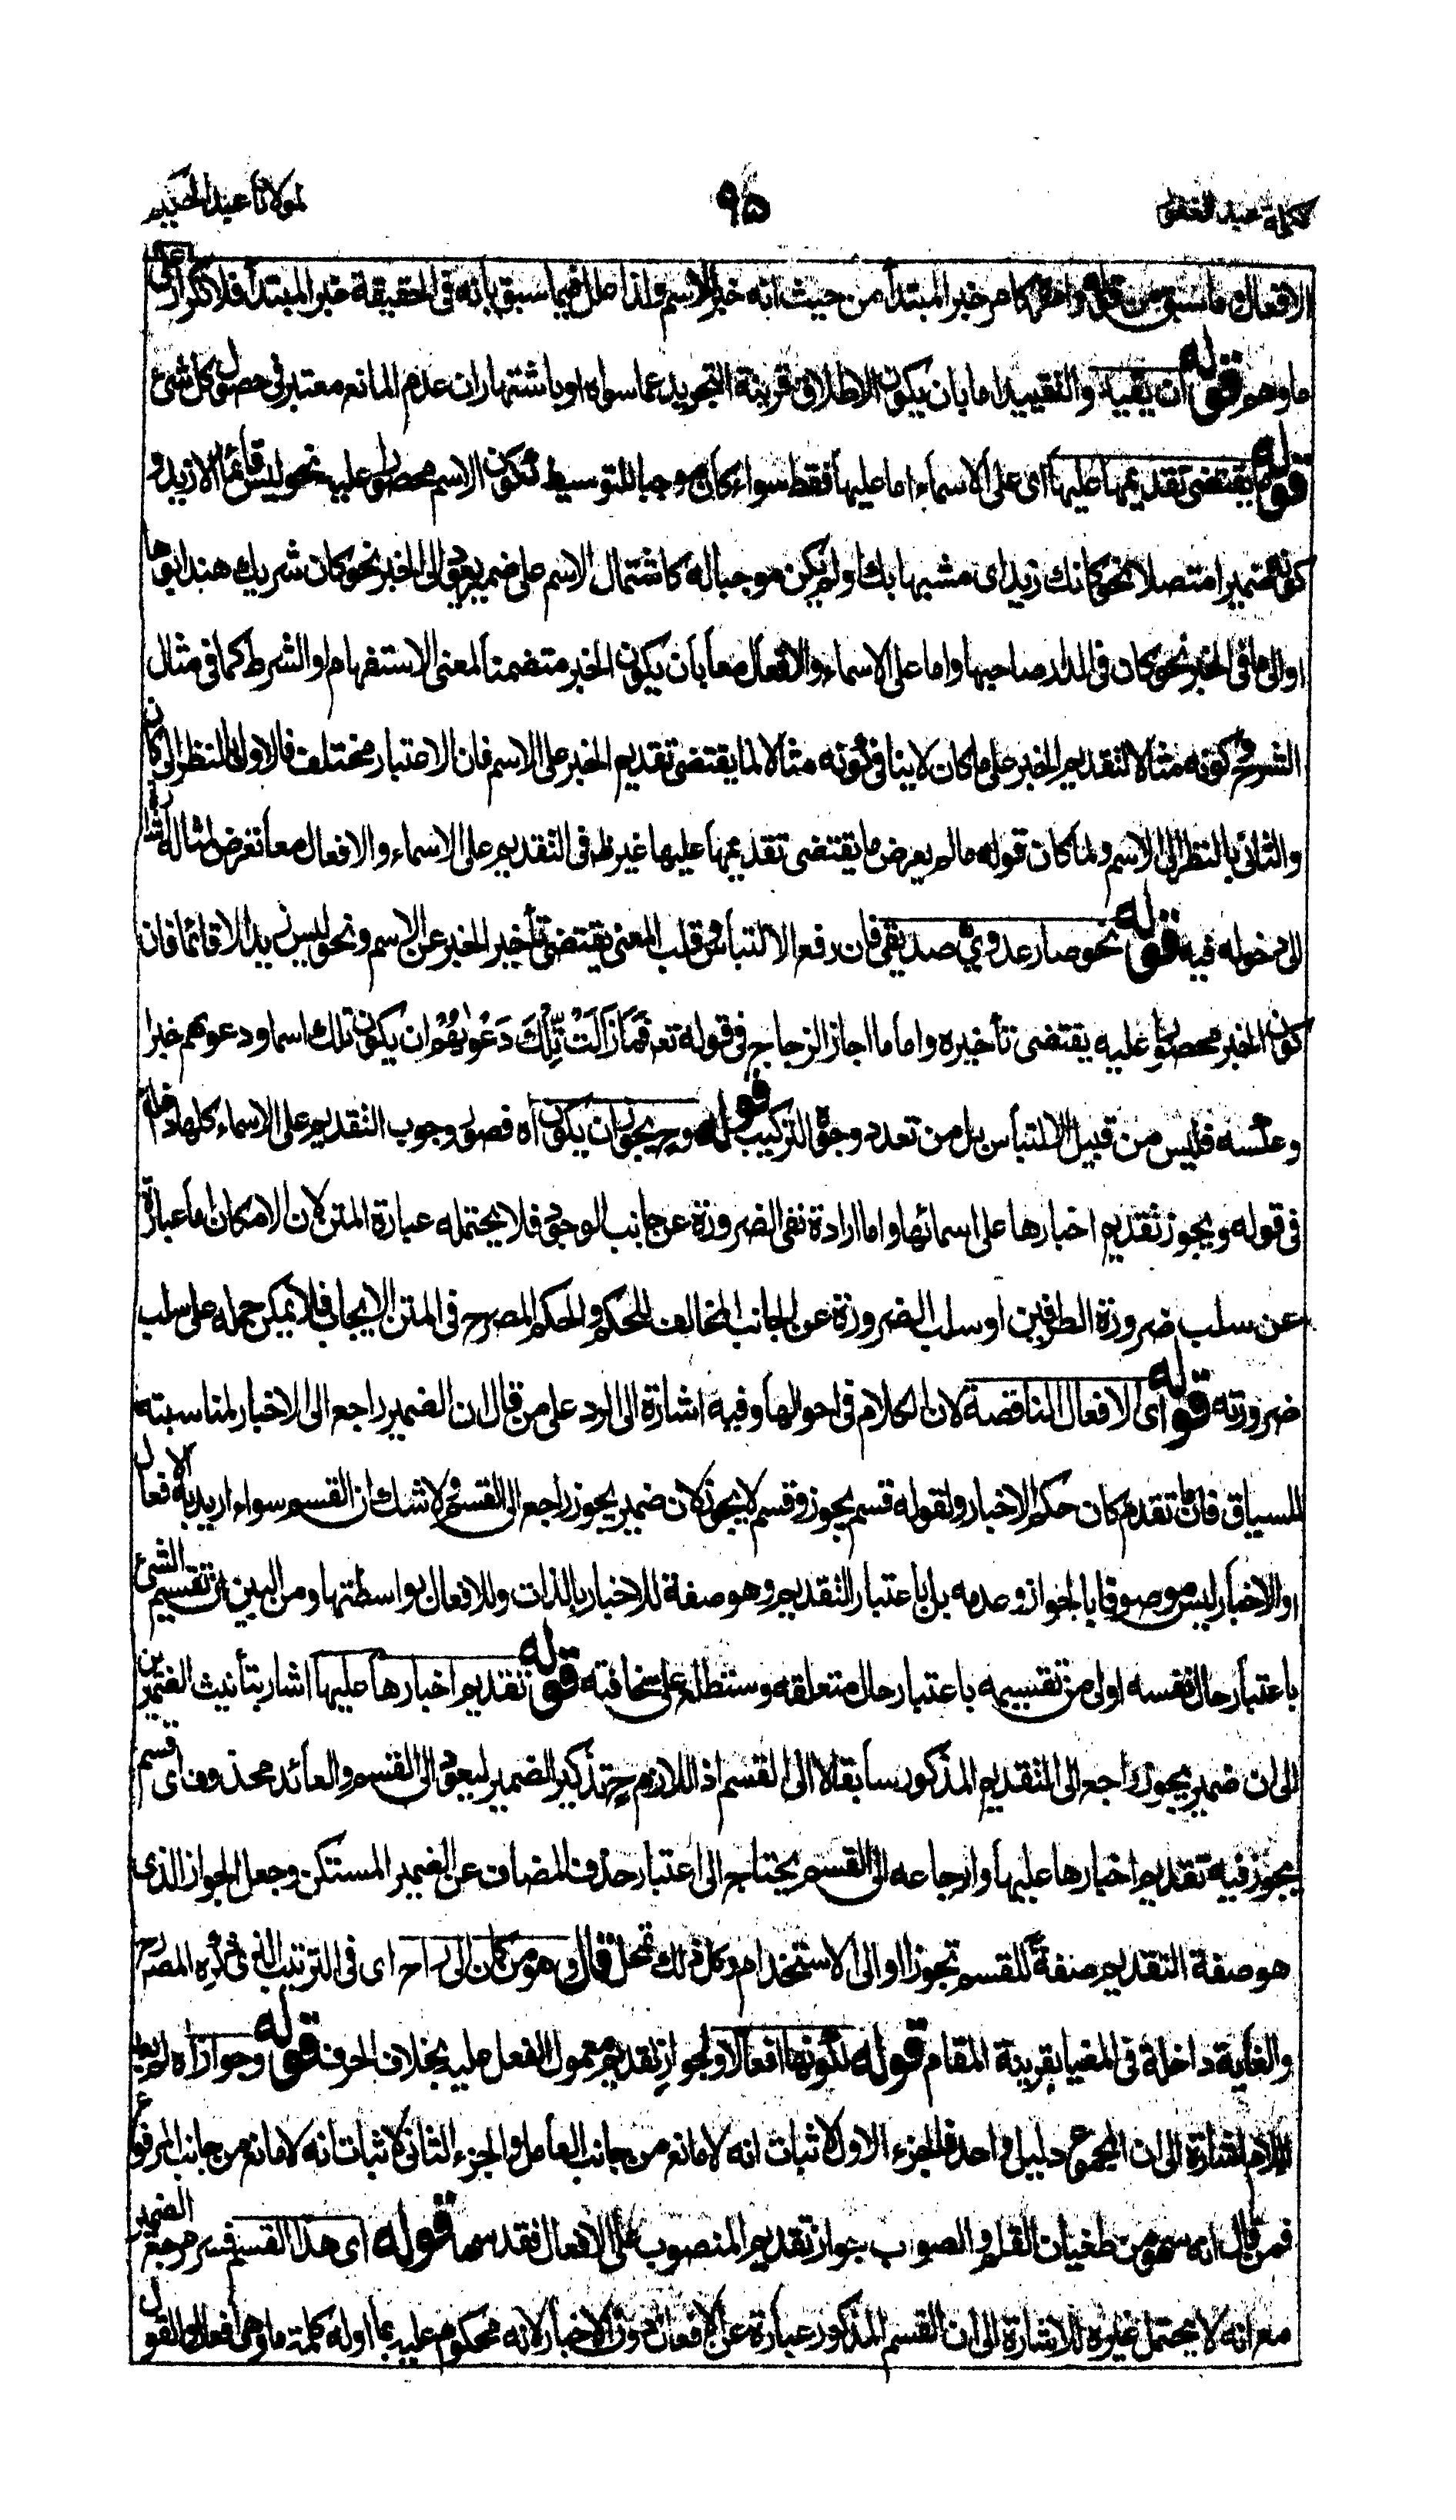 تكملة عبد الغفور ٩٥ لمولانا عبد الحكيم
الافعال وما سبق من قوله وامره كامر خبر المبتدأ من حيث انه خبر الاسم ولذا علل فيما سبق بانه فى الحقيقة خبر المبتدأ فلا تكرار
ما وهو قوله ان يقيد والتقييد اما بان يكون الاطلاق بقرينة التجريد عما سواه او باشتهار ان عدم المانع معتبر فى حصول كل شئ
قوله يقتضى تقديمها عليها اى على الاسماء اما عليها فقط سواء كان موجبا للتوسيط ككون الاسم محصورا عليه نحو ليس قائما الا زيد و
كونه ضميرا متصلا نحو كانك زيد اى مشبها بك او لم يكن موجبا له كاشتمال الاسم على ضمير يعود الى الخبر نحو كان شريك هند ابوها
او الى ما فى الخبر نحو كان فى الدار صاحبها واما على الاسماء والافعال معا بان يكون الخبر متضمنا لمعنى الاستفهام او الشرط كما فى مثال
الشرح وكونه مثالا لتقديم الخبر على ما كان لا ينافى كونه مثالا لما يقتضى تقديم الخبر على الاسم فان الاعتبار مختلف فالاول بالنظر الى كان
والثانى بالنظر الى الاسم ولما كان قوله ما لم يعرض ما يقتضى تقديمها عليها غير ظ فى التقديم على الاسماء والافعال معا تعرض لمثاله اشارة
الى دخوله فيه قوله نحو صار عدوى صديقى فان رفع الالتباس وقلب المعنى يقتضى تأخير الخبر عن الاسم ونحو ليس زيد الا قائما فان
كون الخبر محصورا عليه يقتضى تأخيره واما ما اجاز الزجاج فى قوله تع فَمَا زَالَتْ تِلْكَ دَعْوٰيهُمْ ان يكون تلك اسما ودعوٰيهم خبرا
وعكسه فليس من قبيل الالتباس بل من تعدد وجوه التركيب قوله وح يجوز ان يكون اه فصور وجوب التقديم على الاسماء كلها داخلة
فى قوله ويجوز تقديم اخبارها على اسمائها واما ارادة نفى الضرورة عن جانب الوجود فلا يحتمله عبارة المتن لان الامكان اما عبارة
عن سلب ضرورة الطرفين او سلب الضرورة عن الجانب المخالف للحكم والحكم المصرح فى المتن الايجاب فلا يمكن حمله على سلب
ضرورته قوله اى الافعال الناقصة لان الكلام فى احوالها وفيه اشارة الى الرد على من قال ان الضمير راجع الى الاخبار لمناسبته
للسياق فان ما تقدم كان حكم الاخبار ولقوله قسم يجوز وقسم لا يجوز لان ضمير يجوز راجع الى القسم ولا شك ان القسم سواء اريد به الافعال
او الاخبار ليس موصوفا بالجواز وعدمه بل باعتبار التقديم وهو صفة للاخبار بالذات وللافعال بواسطتها ومن البين ان تقسيم الشئ
باعتبار حال نفسه اولى من تقسيمه باعتبار حال متعلقه وستطلع على سخافته قوله تقديم اخبارها عليها اشار بتأنيث الضميرين
الى ان ضمير يجوز راجع الى التقديم المذكور سابقا لا الى القسم اذ اللازم ح تذكير الضمير ليعود الى القسم والعائد محذوف اى قسم
يجوز فيه تقديم اخبارها عليها وارجاعه الى القسم يحتاج الى اعتبار حذف المضاف عن الضمير المستكن وجعل الجواز الذى
هو صفة التقديم صفة للقسم تجوزا او الى الاستخدام وكل ذلك تمحل قال وهو من كان الى راح اى فى الترتيب الذى ذكره المصرح
والغاية داخلة فى المغيا بقرينة المقام قوله لكونها افعالا ولجواز تقديم معمول الفعل عليه بخلاف الحرف قوله وجواز اه لم يعد
اللام اشارة الى ان المجموع دليل واحد فالجزء الاول لاثبات انه لا مانع من جانب العامل والجزء الثانى لاثبات انه لا مانع من جانب المرفوع
فمن قال انه سهو من طغيان القلم والصواب جواز تقديم المنصوب على الافعال فقد سها قوله اى هذا القسم فسر مرجع الضمير
مع انه لا يحتمل غيره للاشارة الى ان القسم المذكور عبارة عن الافعال دون الاخبار لانه محكوم عليه بما اوله كلمة ما وهى افعال والقول